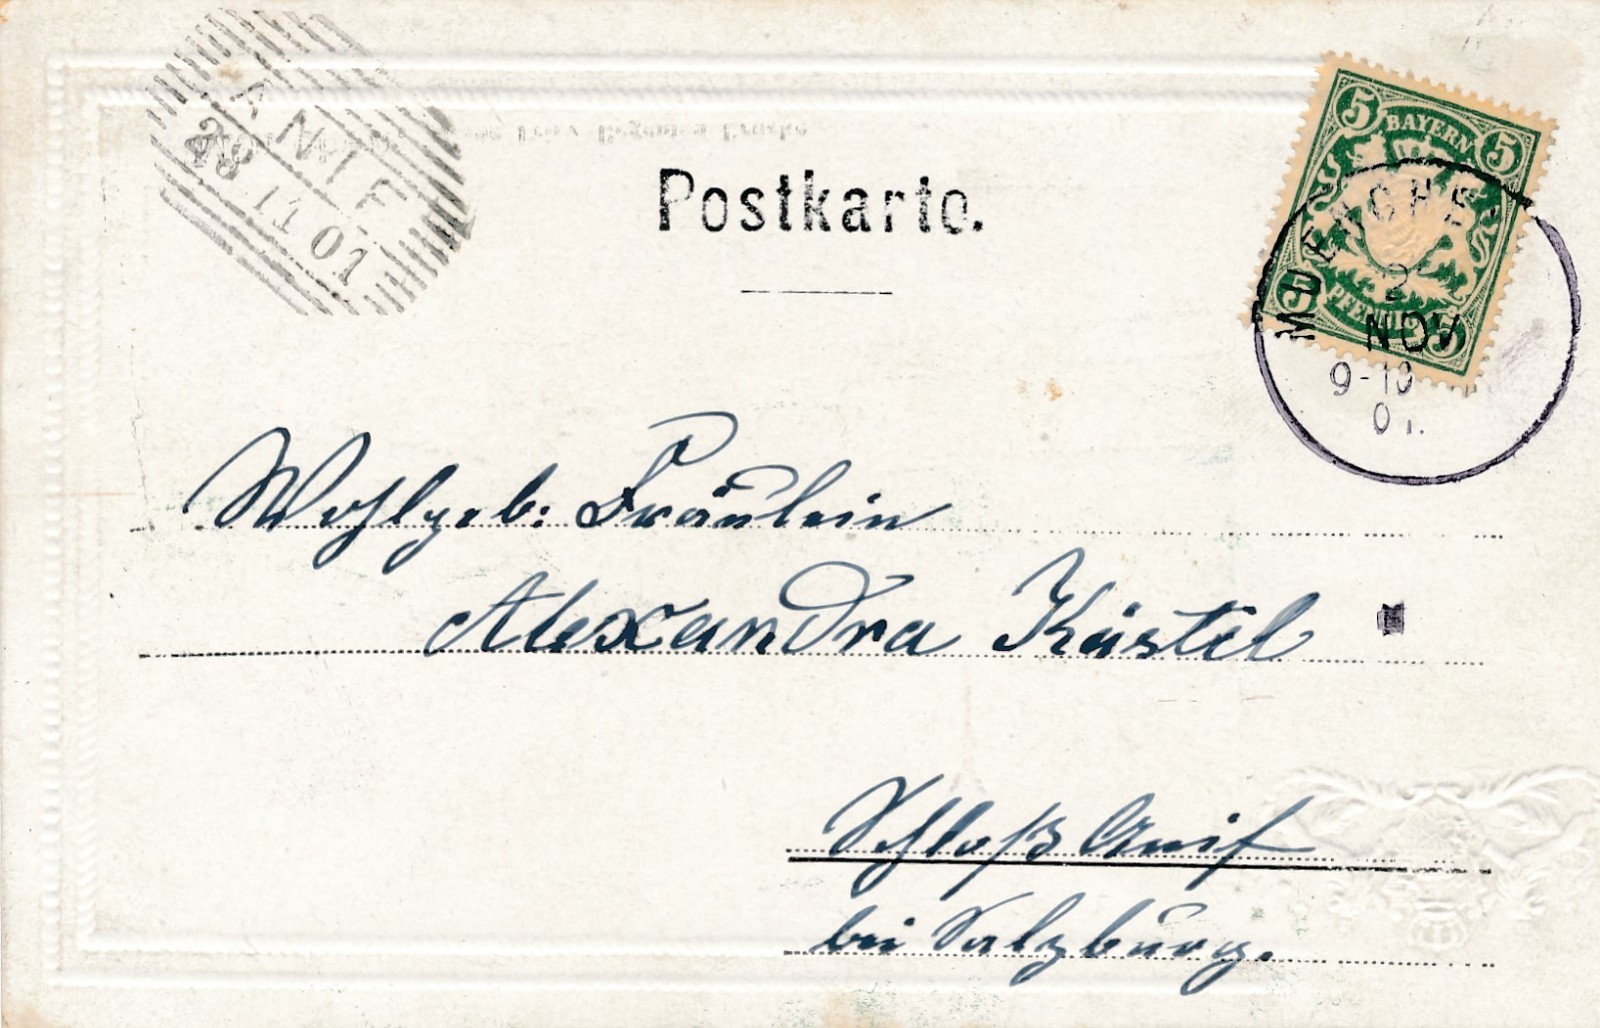 ANIF
28 11 01
Postkarte.
5 BAYERN 5
5 PFENNIG 5
MUENCHE
2
NOV
9-10
01.
Wohlgeb: Fräulein
Alexandra Kästel
Schloß Anif
bei Salzburg.